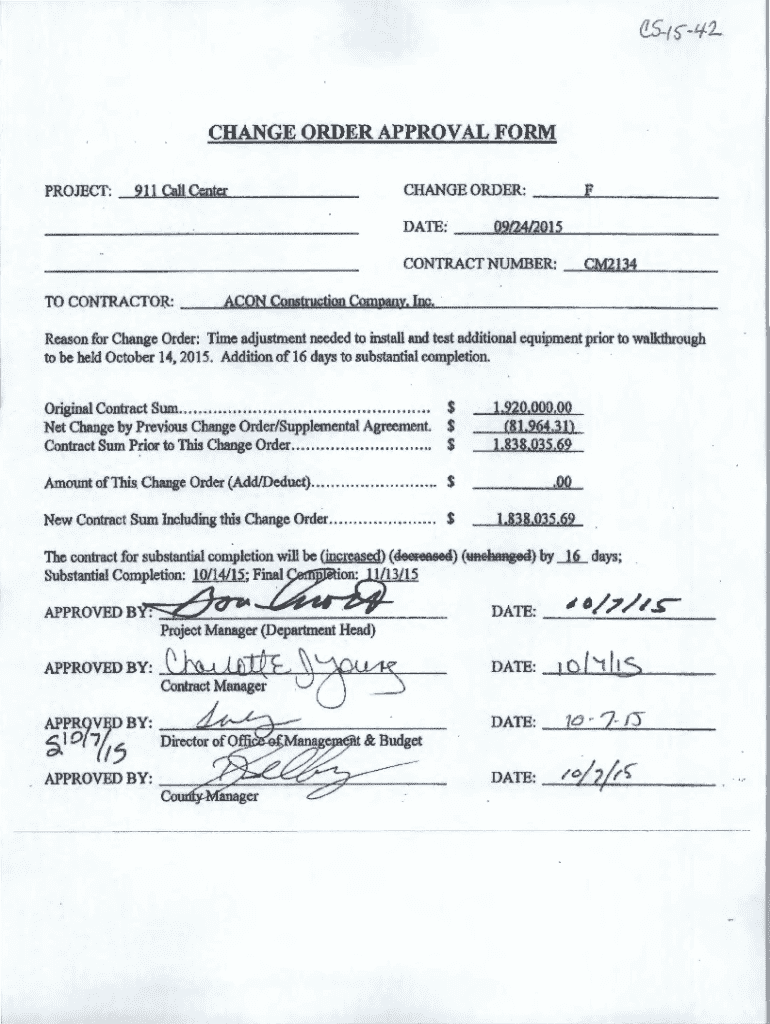 CS-15-42
CHANGE ORDER APPROVAL FORM
PROJECT: 911 Call Center CHANGE ORDER: F
DATE: 09/24/2015
CONTRACT NUMBER: CM2134
TO CONTRACTOR: ACON Construction Company, Inc.
Reason for Change Order: Time adjustment needed to install and test additional equipment prior to walkthrough
to be held October 14, 2015. Addition of 16 days to substantial completion.
Original Contract Sum.................................................... $ 1,920,000.00
Net Change by Previous Change Order/Supplemental Agreement. $ (81,964.31)
Contract Sum Prior to This Change Order............................. $ 1,838,035.69
Amount of This Change Order (Add/Deduct).......................... $ .00
New Contract Sum Including this Change Order...................... $ 1,838,035.69
The contract for substantial completion will be (increased) (decreased) (unchanged) by 16 days;
Substantial Completion: 10/14/15; Final Completion: 11/13/15
APPROVED BY: DATE: 10/7/15
Project Manager (Department Head)
APPROVED BY: Charlotte J Young DATE: 10/7/15
Contract Manager
APPROVED BY: DATE: 10-7-15
10/7/15 Director of Office of Management & Budget
APPROVED BY: DATE: 10/7/15
County Manager